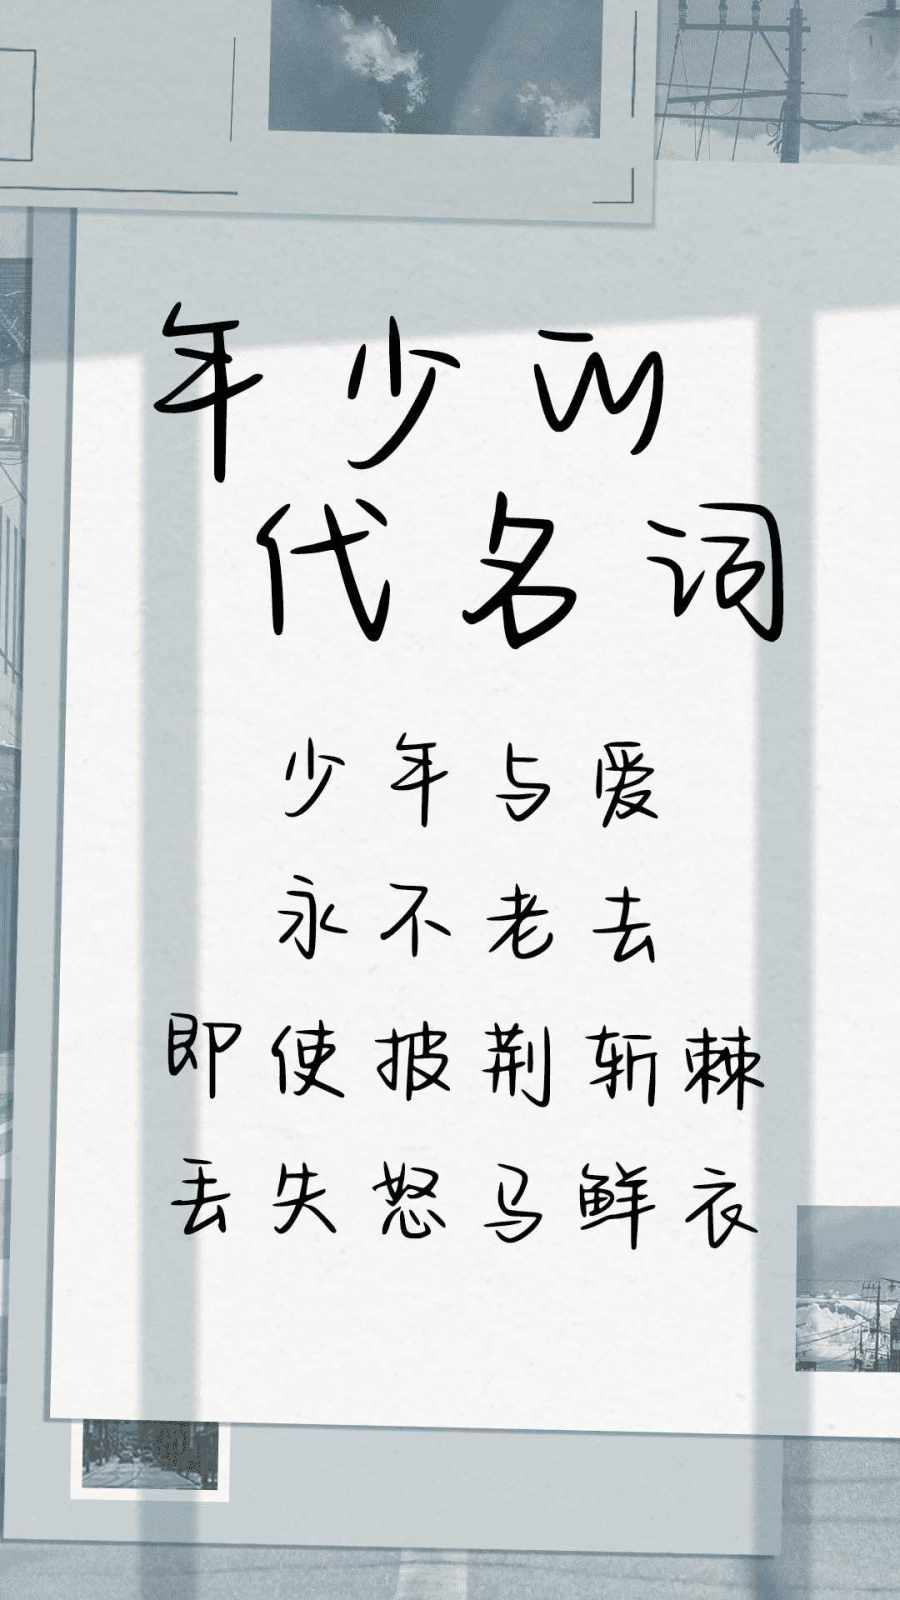 年少的
代名词
少年与爱
永不老去
即使披荆斩棘
丢失怒马鲜衣